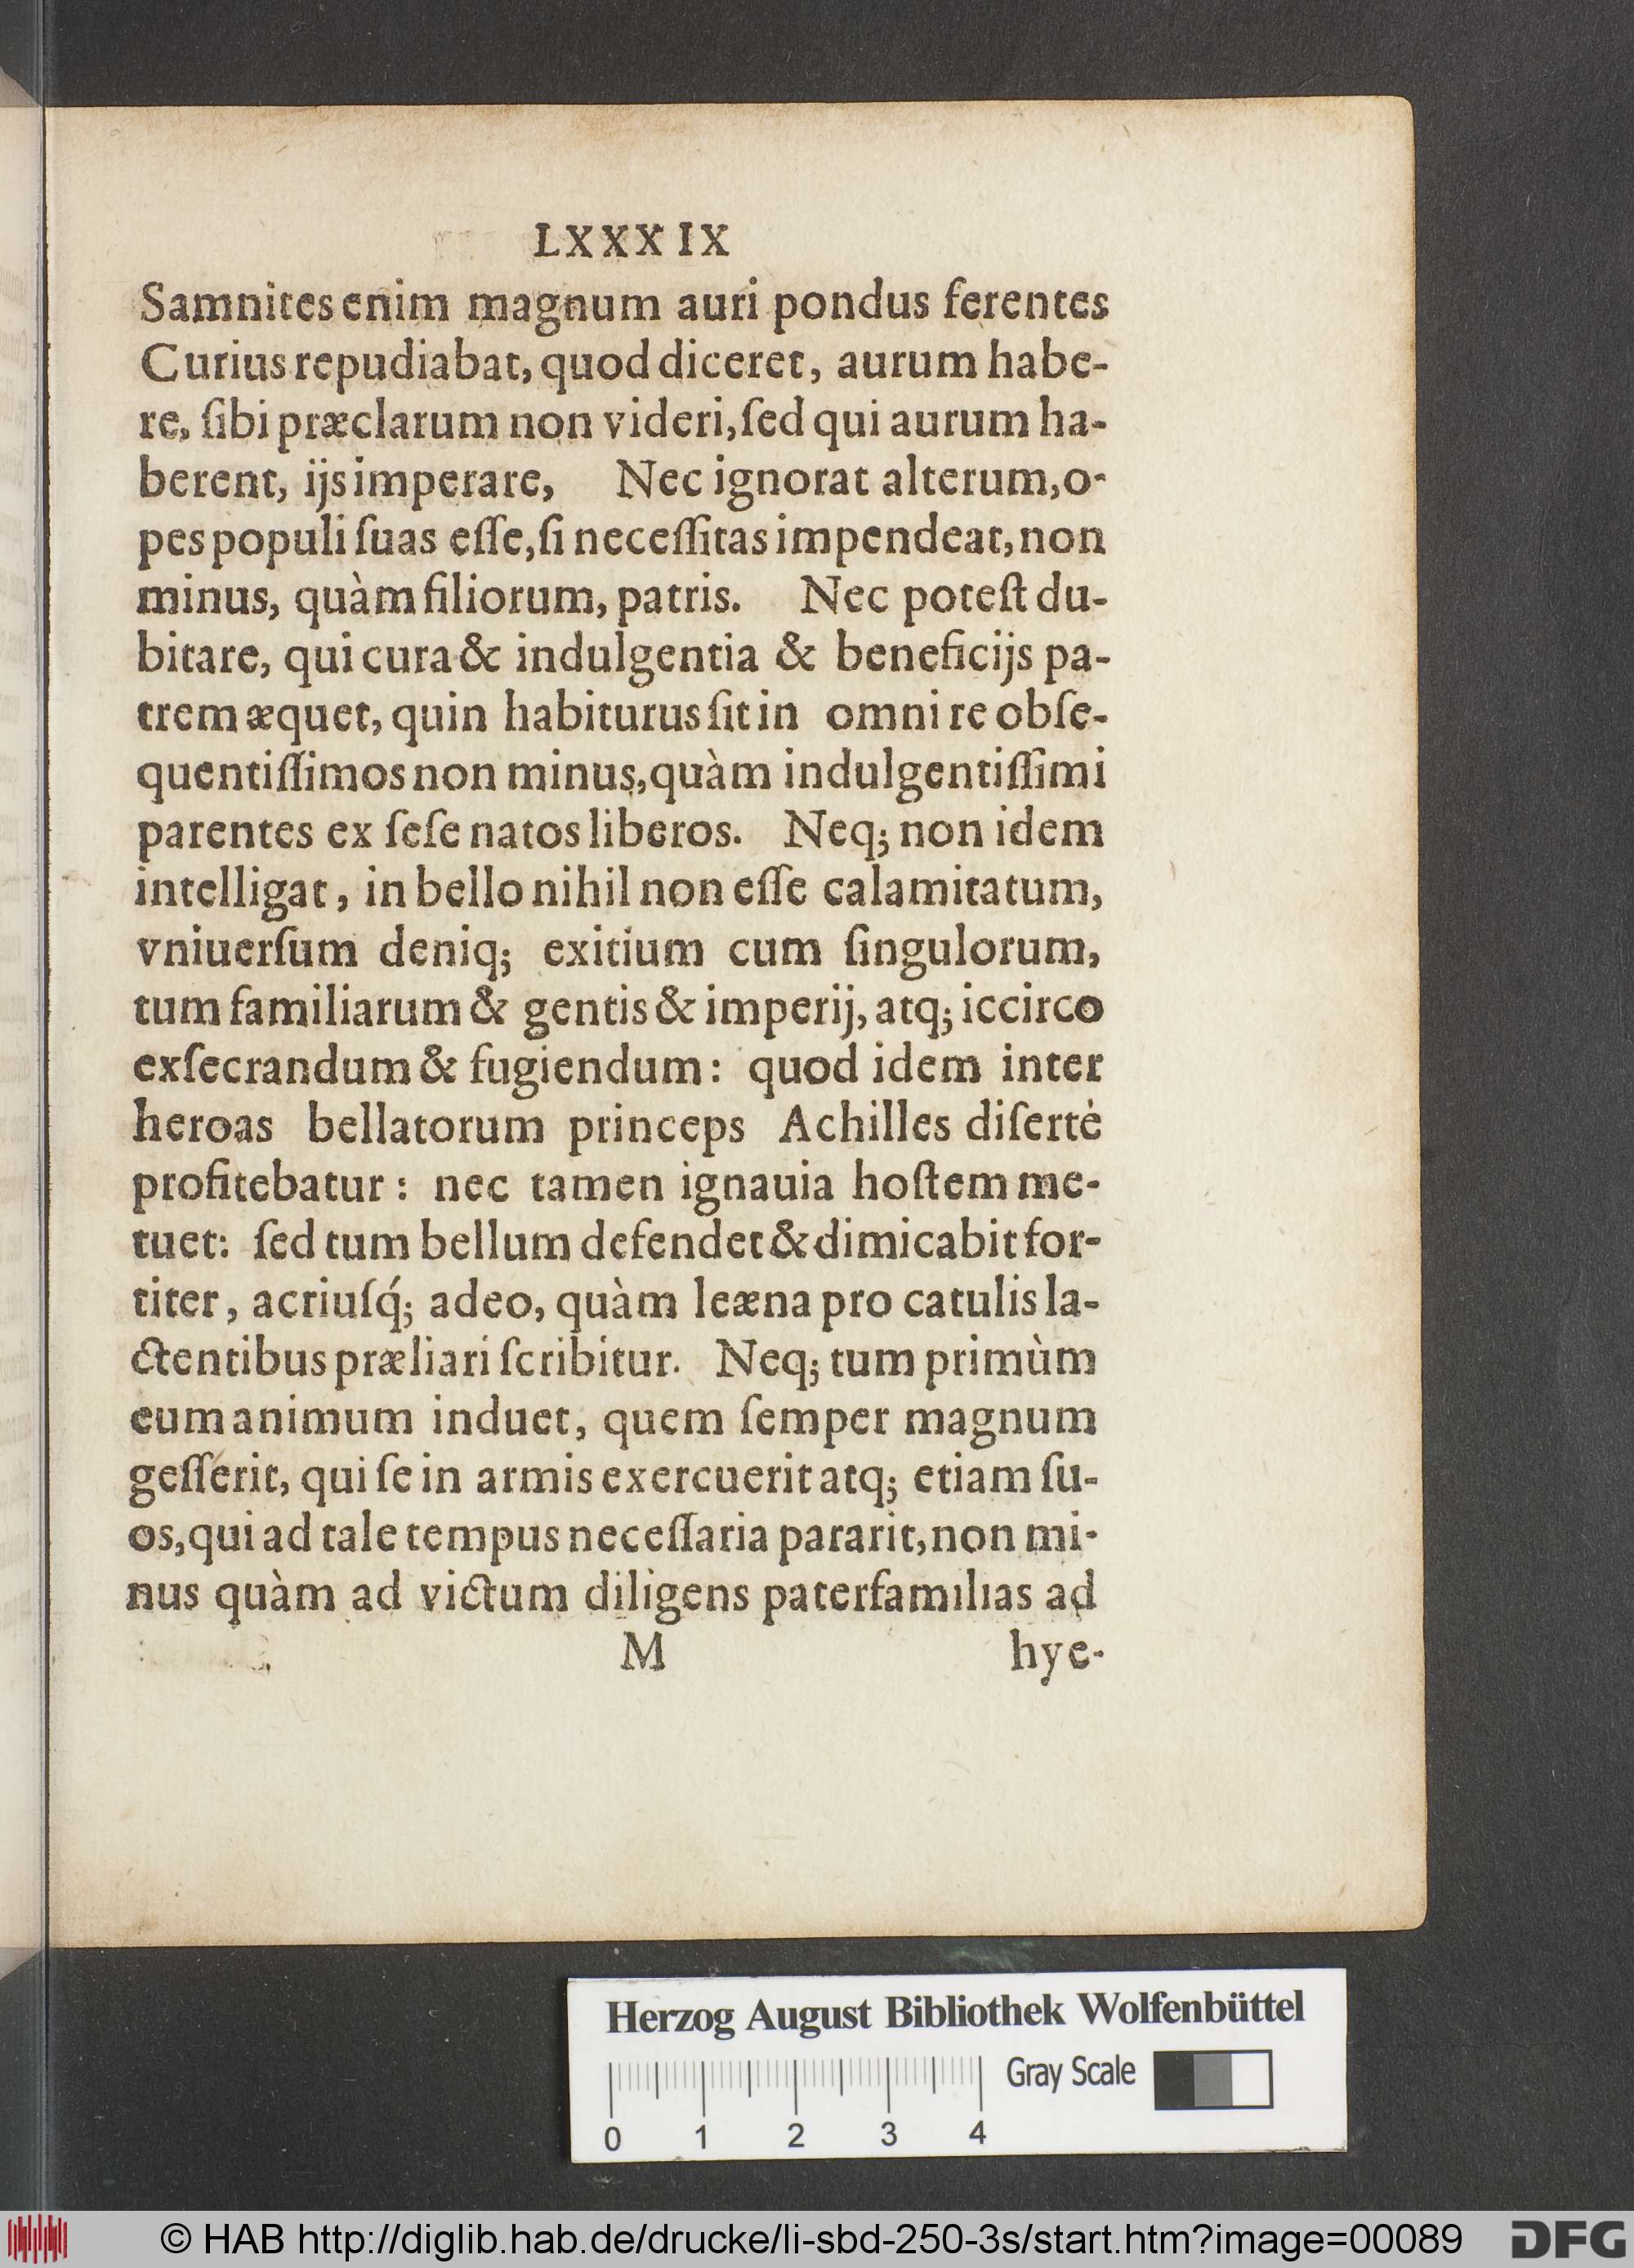 LXXXIX
Samnites enim magnum auri pondus ferentes
Curius repudiabat, quod diceret, aurum habe-
re, ſibi præclarum non videri, ſed qui aurum ha-
berent, ijs imperare, Nec ignorat alterum, o-
pes populi ſuas eſſe, ſi neceſſitas impendeat, non
minus, quàm filiorum, patris. Nec poteſt du-
bitare, qui cura & indulgentia & beneficijs pa-
trem æquet, quin habiturus ſit in omni re obſe-
quentiſſimos non minus, quàm indulgentiſſimi
parentes ex ſeſe natos liberos. Neq; non idem
intelligat, in bello nihil non eſſe calamitatum,
vniuerſum deniq; exitium cum ſingulorum,
tum familiarum & gentis & imperij, atq; iccirco
exſecrandum & fugiendum: quod idem inter
heroas bellatorum princeps Achilles diſertè
profitebatur: nec tamen ignauia hoſtem me-
tuet: ſed tum bellum defendet & dimicabit for-
titer, acriuſq́; adeo, quàm leæna pro catulis la-
ctentibus præliari ſcribitur. Neq; tum primùm
eum animum induet, quem ſemper magnum
geſſerit, qui ſe in armis exercuerit atq; etiam ſu-
os, qui ad tale tempus neceſſaria pararit, non mi-
nus quàm ad victum diligens paterfamilias ad
M hye-
Herzog August Bibliothek Wolfenbüttel
Gray Scale
0 1 2 3 4
© HAB http://diglib.hab.de/drucke/li-sbd-250-3s/start.htm?image=00089
DFG